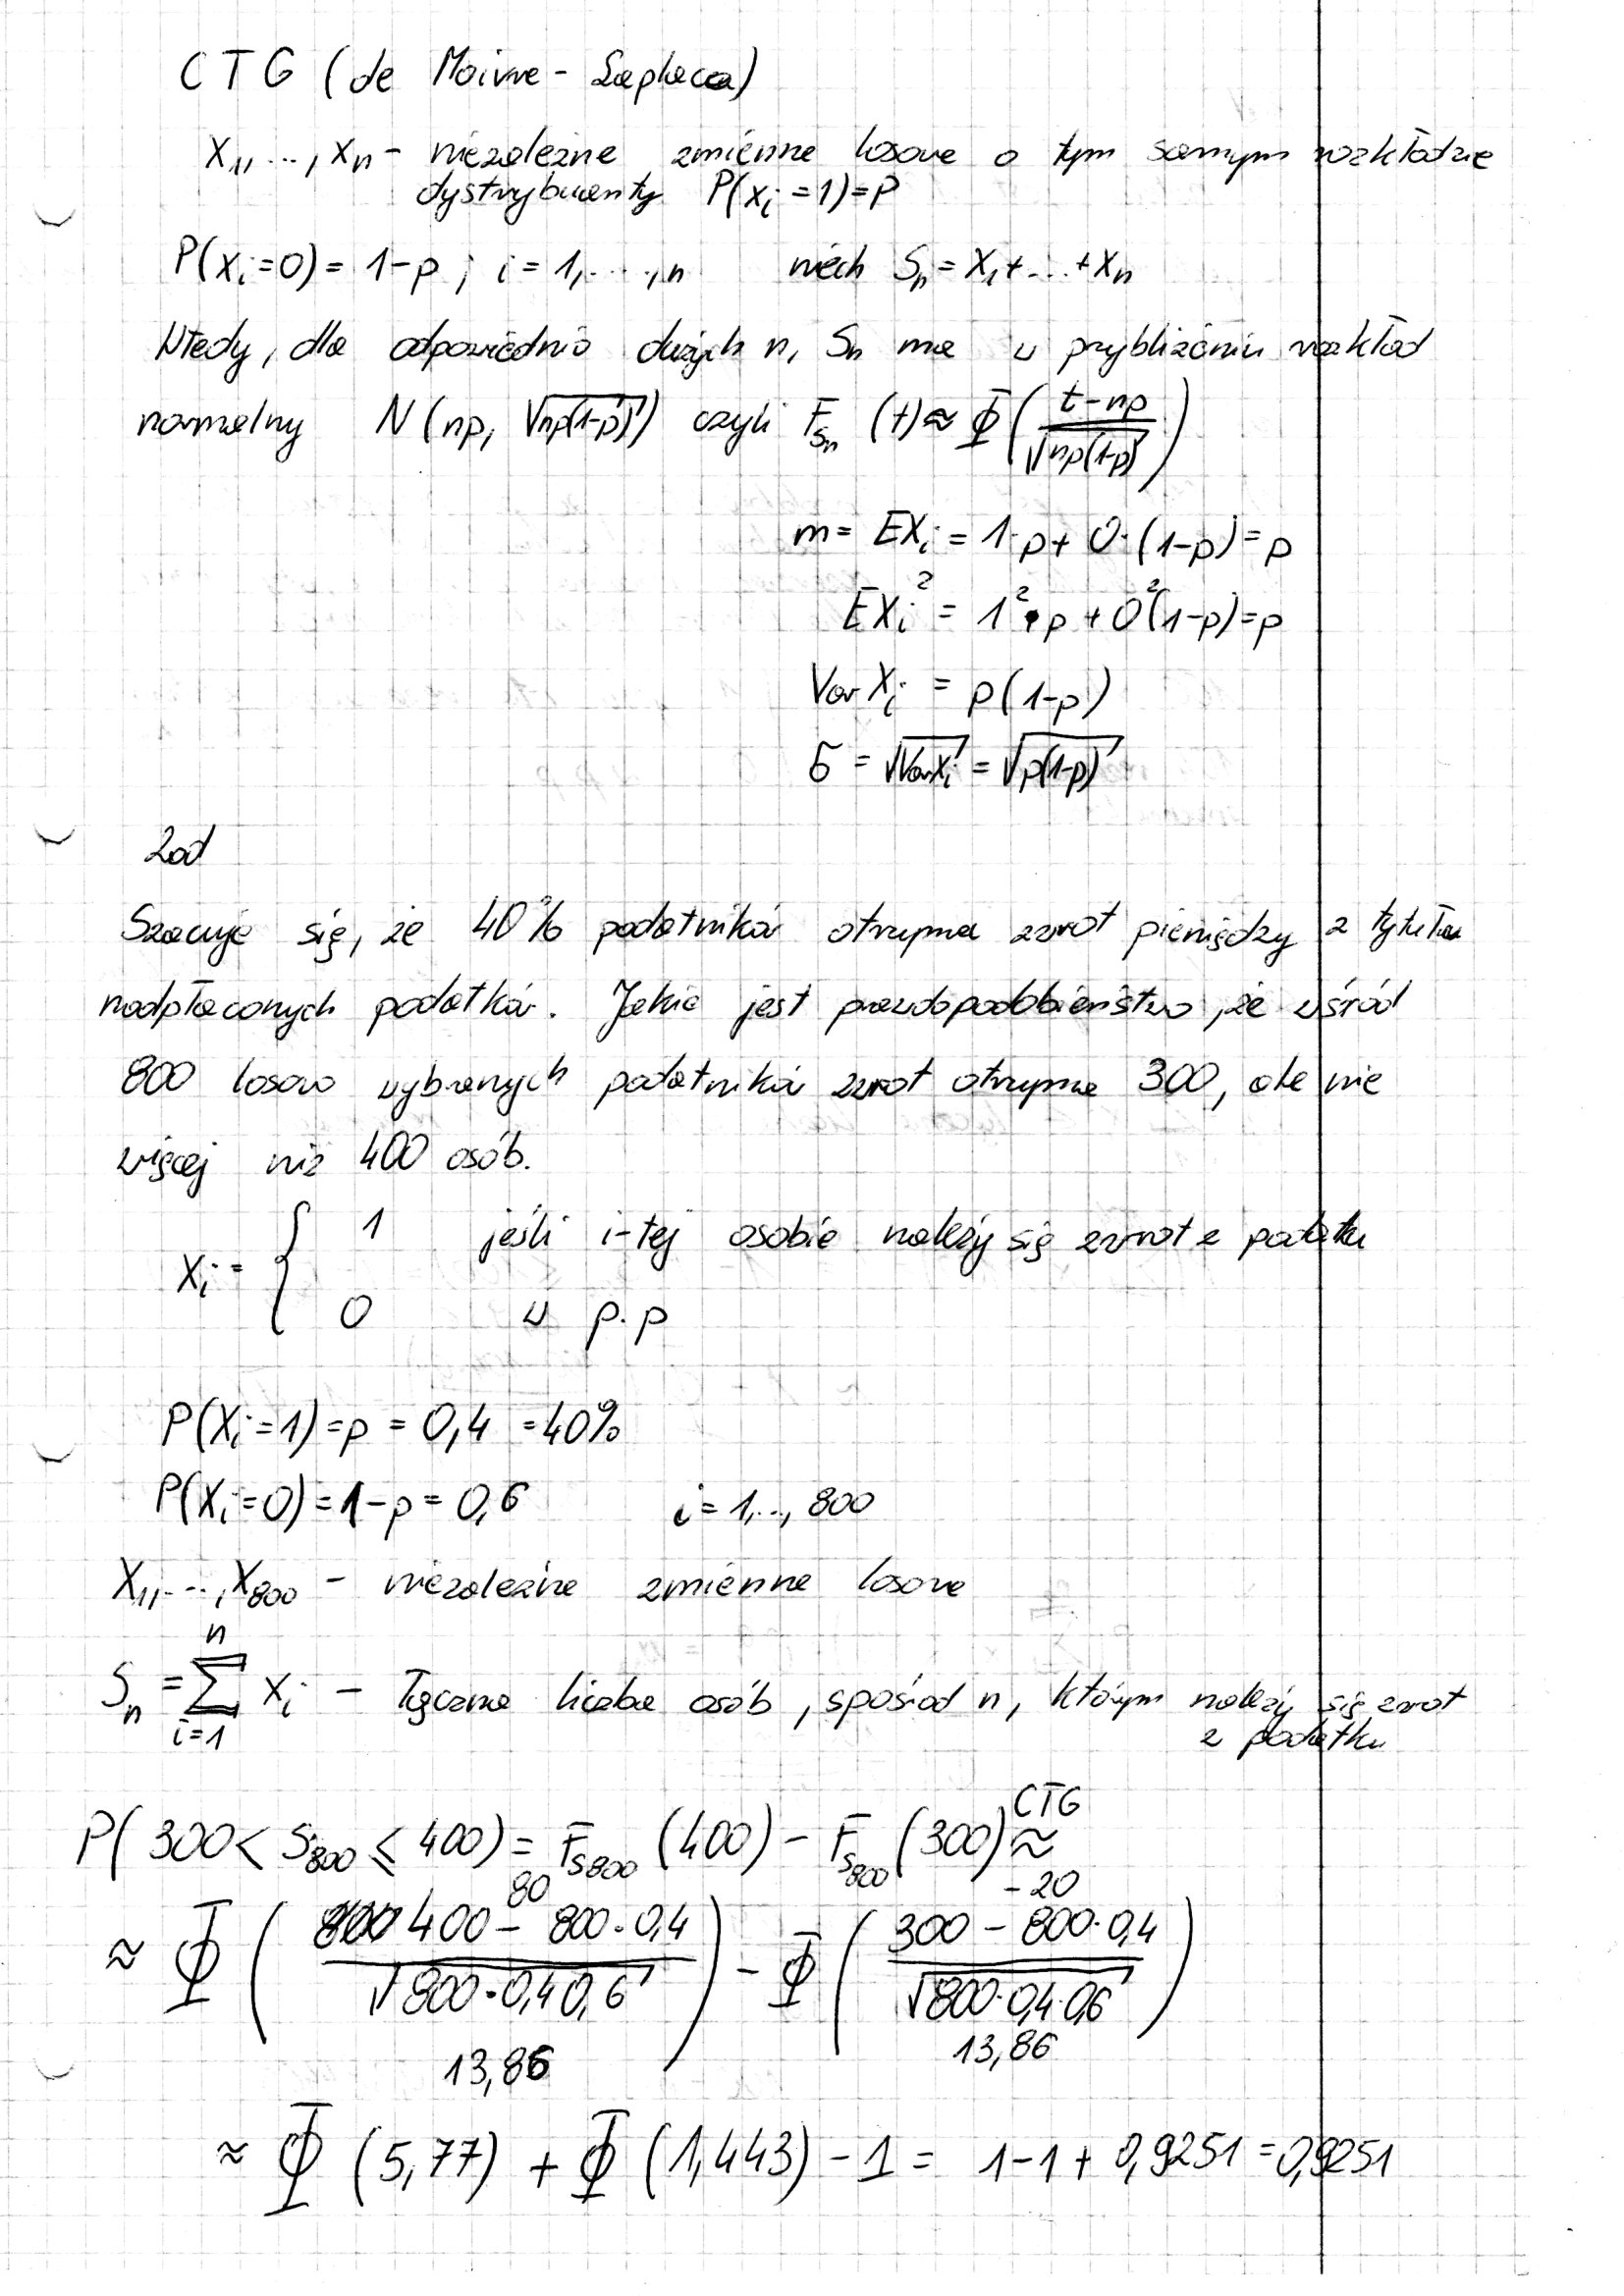 CTG (de Moivre - Laplace'a)
X₁, ..., Xₙ - niezależne zmienne losowe o tym samym rozkładzie
dystrybuanty P(Xᵢ = 1) = P
P(Xᵢ=0) = 1-p ; i = 1, ..., n niech Sₙ = X₁ + ... + Xₙ
Wtedy, dla odpowiednio dużych n, Sₙ ma w przybliżeniu rozkład
normalny N(np, √(np(1-p))) czyli F_Sₙ (t) ≈ Φ((t-np)/√(np(1-p)))
m = EXᵢ = 1·p + 0·(1-p) = p
EXᵢ² = 1²·p + 0²(1-p) = p
Var Xᵢ = p(1-p)
σ = √(Var Xᵢ) = √(p(1-p))
Zad
Szacuje się, że 40% podatników otrzyma zwrot pieniędzy z tytułu
nadpłaconych podatków. Jakie jest prawdopodobieństwo, że wśród
800 losowo wybranych podatników zwrot otrzyma 300, ale nie
więcej niż 400 osób.
Xᵢ = { 1 jeśli i-tej osobie należy się zwrot z podatku
0 w p.p
P(Xᵢ=1) = p = 0,4 = 40%
P(Xᵢ=0) = 1-p = 0,6 i = 1,..., 800
X₁, ..., X₈₀₀ - niezależne zmienne losowe
Sₙ = ∑ᵢ₌₁ⁿ Xᵢ - łączna liczba osób, spośród n, którym należy się zwrot
z podatku
P(300 < S₈₀₀ ≤ 400) = F_S₈₀₀ (400) - F_S₈₀₀ (300) CTG ≈
80 -20
≈ Φ((400 - 800·0,4)/√(800·0,4 0,6)) - Φ((300 - 800·0,4)/√(800·0,4·0,6))
13,86 13,86
≈ Φ(5,77) + Φ(1,443) - 1 = 1-1 + 0,9251 = 0,9251